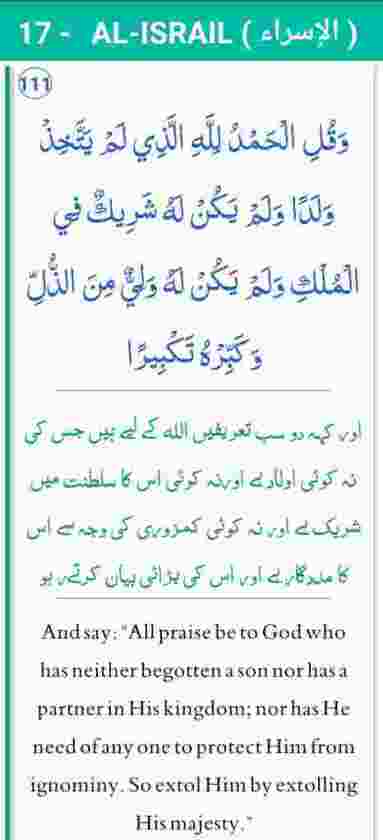 17 - AL-ISRAIL ( الإسراء )
111
وَقُلِ الْحَمْدُ لِلَّهِ الَّذِي لَمْ يَتَّخِذْ
وَلَدًا وَلَمْ يَكُنْ لَهُ شَرِيكٌ فِي
الْمُلْكِ وَلَمْ يَكُنْ لَهُ وَلِيٌّ مِنَ الذُّلِّ
وَكَبِّرْهُ تَكْبِيرًا
اور کہہ دو سب تعریفیں اللہ کے لیے ہیں جس کی
نہ کوئی اولاد ہے اور نہ کوئی اس کا سلطنت میں
شریک ہے اور نہ کوئی کمزوری کی وجہ سے اس
کا مددگار ہے اور اس کی بڑائی بیان کرتے رہو
And say: "All praise be to God who
has neither begotten a son nor has a
partner in His kingdom; nor has He
need of any one to protect Him from
ignominy. So extol Him by extolling
His majesty."